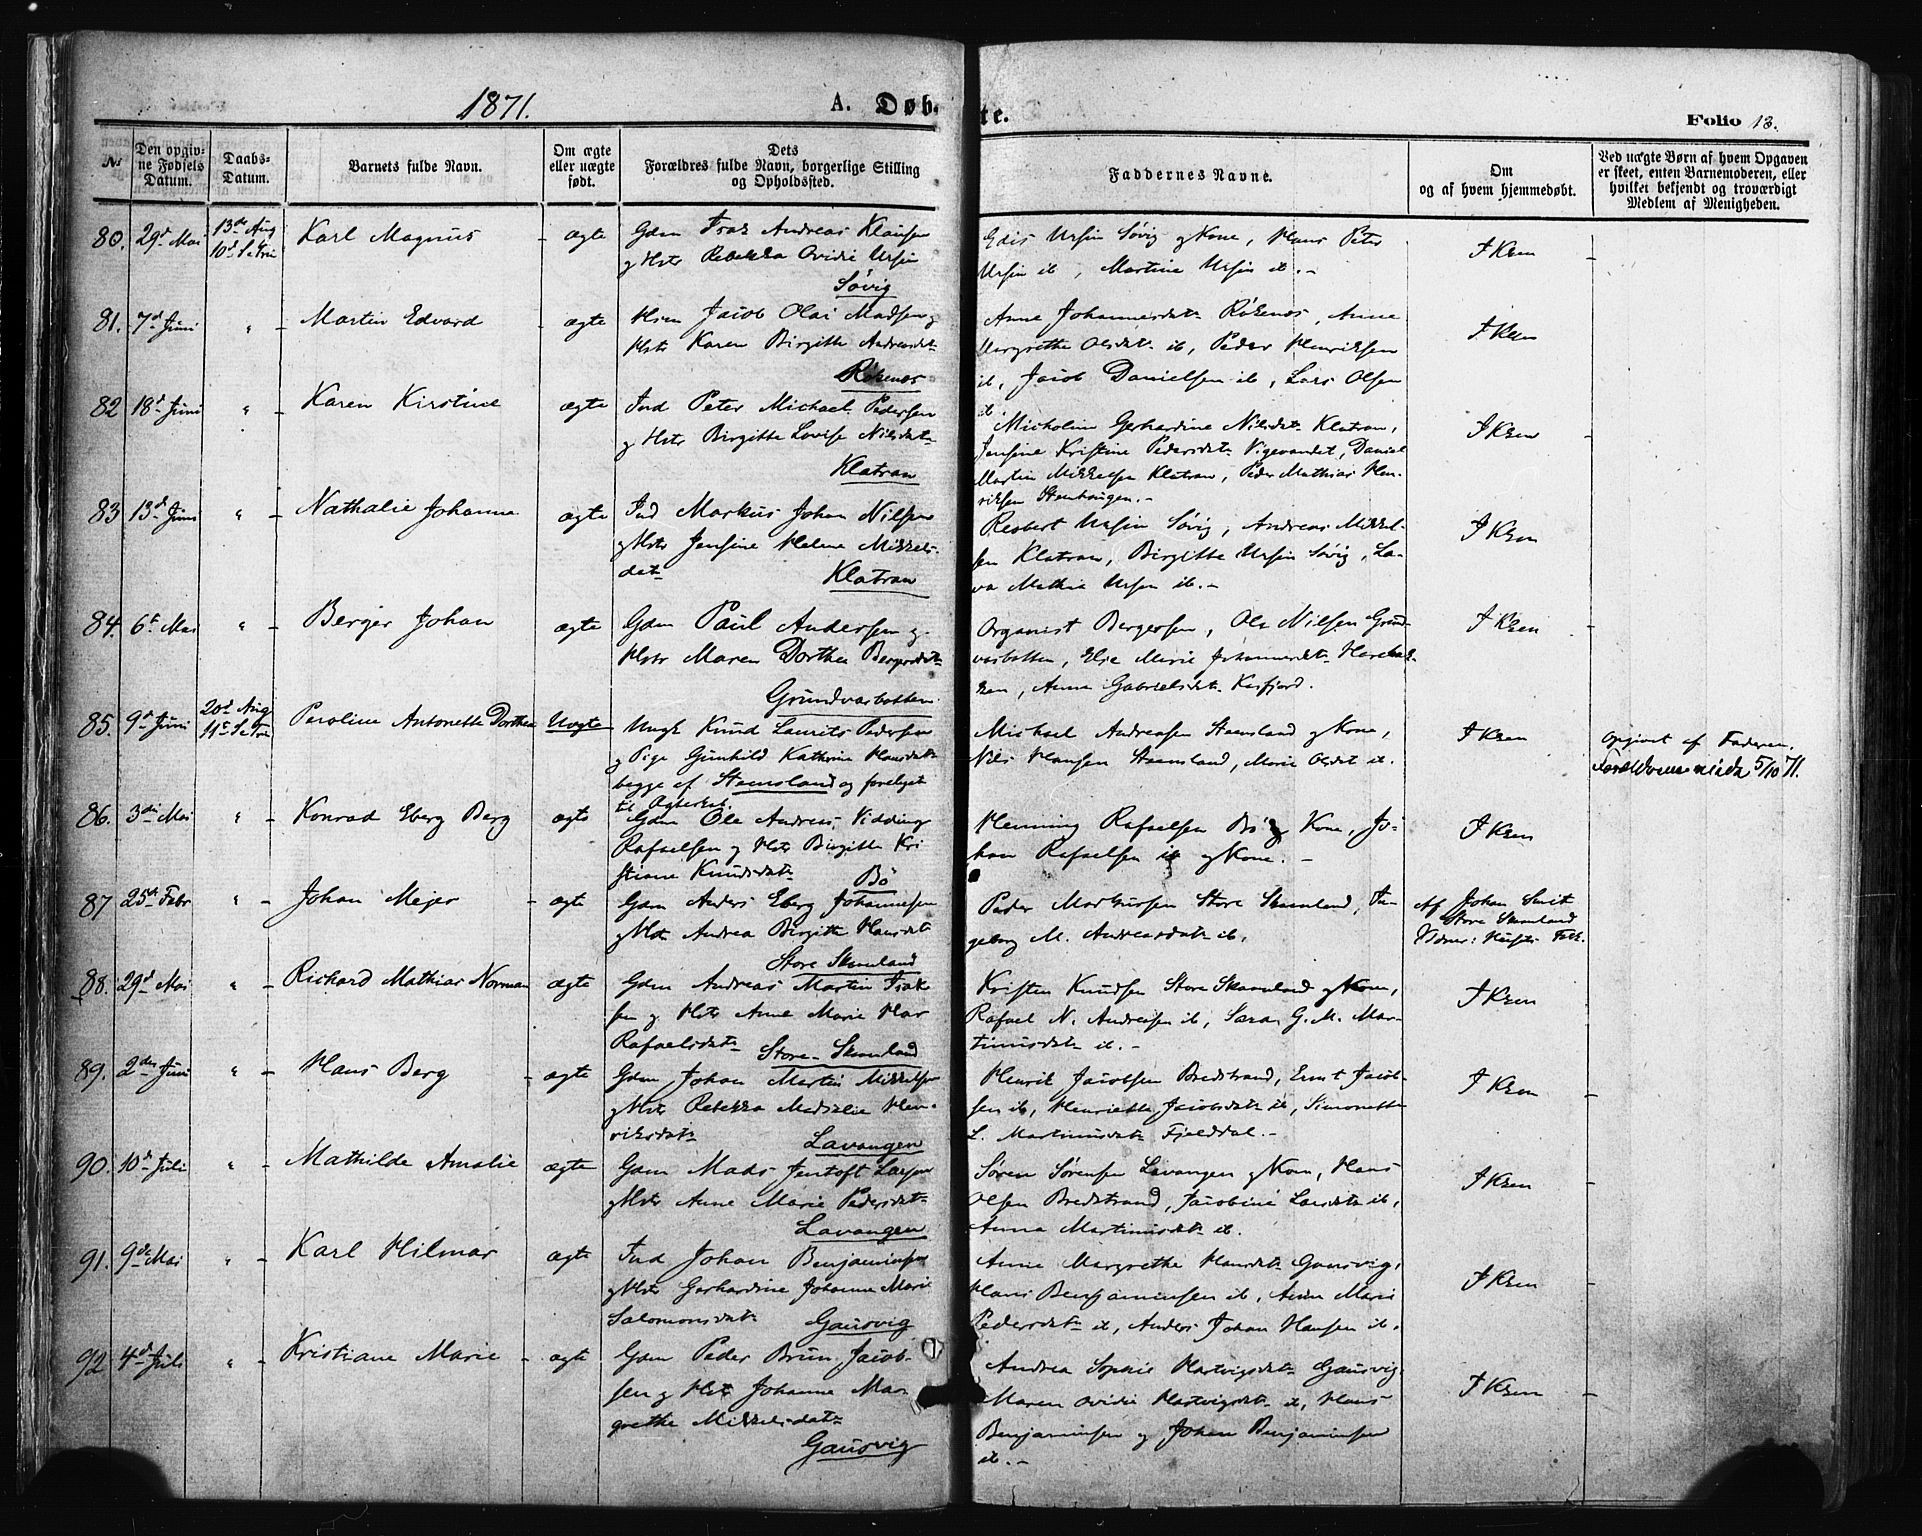 1871.
A. Døbte.
Folio 13.
No
Den opgivne Fødsels Datum.
Daabs-Datum.
Barnets fulde Navn.
Om ægte eller uægte født.
Dets Forældres fulde Navn, borgerlige Stilling og Opholdssted.
Faddernes Navne.
Om og af hvem hjemmedøbt.
Ved uægte Børn af hvem Opgaven er skeet, enten Barnemoderen, eller hvilket bekjendt og troværdigt Medlem af Menigheden.
80. 29d Mai 13de Aug 10d S e Tri Karl Magnus - ægte
Gdm Isak Andreas Klausen
og Hstr Rebekka Ovidie Ursin
Søvig
Edis Ursin Søvig og Kone, Hans Peter
Ursin ib, Martine Ursin ib. -
I Kken -
81. 7d Juni " - Martin Edvard - ægte
Hsm Jacob Olai Madsen og
Hstr Karen Birgitte Andreasdtr
Røkenes
Anne Johannesdtr Røkenes, Anne
Margrethe Olsdtr ib, Peder Henriksen
ib, Jacob Danielsen ib, Lars Olsen
ib
I Kken
82 18d Juni " - Karen Kirstine ægte
Ind Peter Michael Pedersen
og Hstr Birgitte Lovise Nilsdtr
Klatran
Nicholine Gerhardine Nilsdtr Klatran,
Jensine Kristine Pedersdtr Vigevandet, Daniel
Martin Mikkelsen Klatran, Peder Mathias Hen-
riksen Stenhaugen. -
I Kken -
83 13d Juni " - Nathalie Johanne ægte
Ind Markus Johan Nilsen
og Hstr Jensine Helene Mikkels-
datr Klatran
Robert Ursin Søvig, Andreas Mikkel-
sen Klatran, Birgitte Ursin Søvig, La-
va Mathia Ursin ib. -
I Kken
84. 6t Mai " - Berger Johan ægte
Gdm Paul Andersen og
Hstr Maren Dorthea Bergersdtr
Grundvasbotten
Organist Bergersen, Ole Nilsen Grund-
vasbotten, Else Marie Johannesdtr
Anna Gabrielsdtr Kasfjord.
I Kken -
85. 9d Juni 20d Aug 11te S e Tri Peroline Antonette Dorthea Uægte
Ungk Knud Laurits Pedersen
og Pige Gunhild Kathrine Hansdtr
begge af Stensland og forelovet
til Ægteskab.
Michael Andreasen Stensland og Kone,
Nils Hansen Stensland, Marie Olsdtr ib.
I Kken
Opgivet af Faderen.
Forældrene viede 5/10 71.
86. 3die Mai " - Konrad Eberg Berg ægte
Gdm Ole Andreas Vidding
Rafaelsen og Hstr Birgitte Kri
stiane Knudsdtr Bø
Henning Rafaelsen Bø og Kone, Jo-
han Rafaelsen ib og Kone. -
I Kken
87 25de Febr " - Johan Mejer - ægte
Gdm Anders Eberg Johannesen
og Hstr Andrea Birgitte Hansdtr
Store Skjenland
Peder Markussen Store Skjenland, In-
geborg M. Andreasdtr ib.
Af Johan Smit
Store Skjenland
88. 29d Mai " - Richard Mathias Norman ægte
Gdm Andreas Martin Isak
sen og Hstr Anne Marie Mar
Rafaelsdtr Store-Skjenland
Kristen Knudsen Store Skjenland og Kone,
Rafael N. Andreasen ib, Sara G. M. Mar-
tinusdtr ib. -
I Kken -
89. 2den Juni " - Hans Berg - ægte
Gdm Johan Martin Mikkelsen
og Hstr Rebekka Madsalie Hen-
riksdtr Lavangen
Henrik Jacobsen Bredstrand, Ernst Jacob-
sen ib, Henriette Jacobsdtr ib, Simonette
L. Martinusdtr Fjelddal. -
I Kken -
90. 10d Juli " - Mathilde Amalie ægte
Gdm Mads Jentoft Larsen
og Hstr Anne Marie Pedersdtr
Lavangen
Søren Sørensen Lavangen og Kone, Hans
Olsen Bredstrand, Jacobine Larsdtr ib,
Anna Martinusdtr ib.
I Kken -
91. 9de Mai " - Karl Hilmar ægte
Ind Johan Benjaminsen
og Hstr Gerhardine Johanne Marie
Salomonsdtr Gausvig
Anne Margrethe Hansdtr Gausvig,
Hans Benjaminsen ib, Anne Marie
Pedersdtr ib, Anders Johan Hansen ib.
I Kken -
92 4d Juli " - Kristiane Marie - ægte
Gdm Peder Brun Jacob-
sen og Hstr Johanne Mar-
grethe Mikkelsdatr
Gausvig
Andrea Sophie Hartvigsdtr Gausvig,
Maren Ovidie Hartvigsdtr ib, Hans
Benjaminsen og Johan Benjaminsen
ib. -
I Kken -